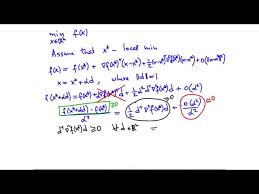 min f(x)
x∈ℝⁿ
Assume that x* - local min
f(x) = f(x*) + ∇f(x*)ᵀ(x-x*) + ½(x-x*)ᵀ∇²f(x*)(x-x*) + o(||x-x*||²)
x = x* + αd, where ||d||=1
f(x*+αd) = f(x*) + α∇f(x*)ᵀd + ½α²dᵀ∇²f(x*)d + o(α²)
f(x*+αd) - f(x*) / α² ≥0 = ½ dᵀ∇²f(x*)d + o(α²)/α² →0
dᵀ∇²f(x*)d ≥ 0 ∀ d ∈ ℝⁿ =